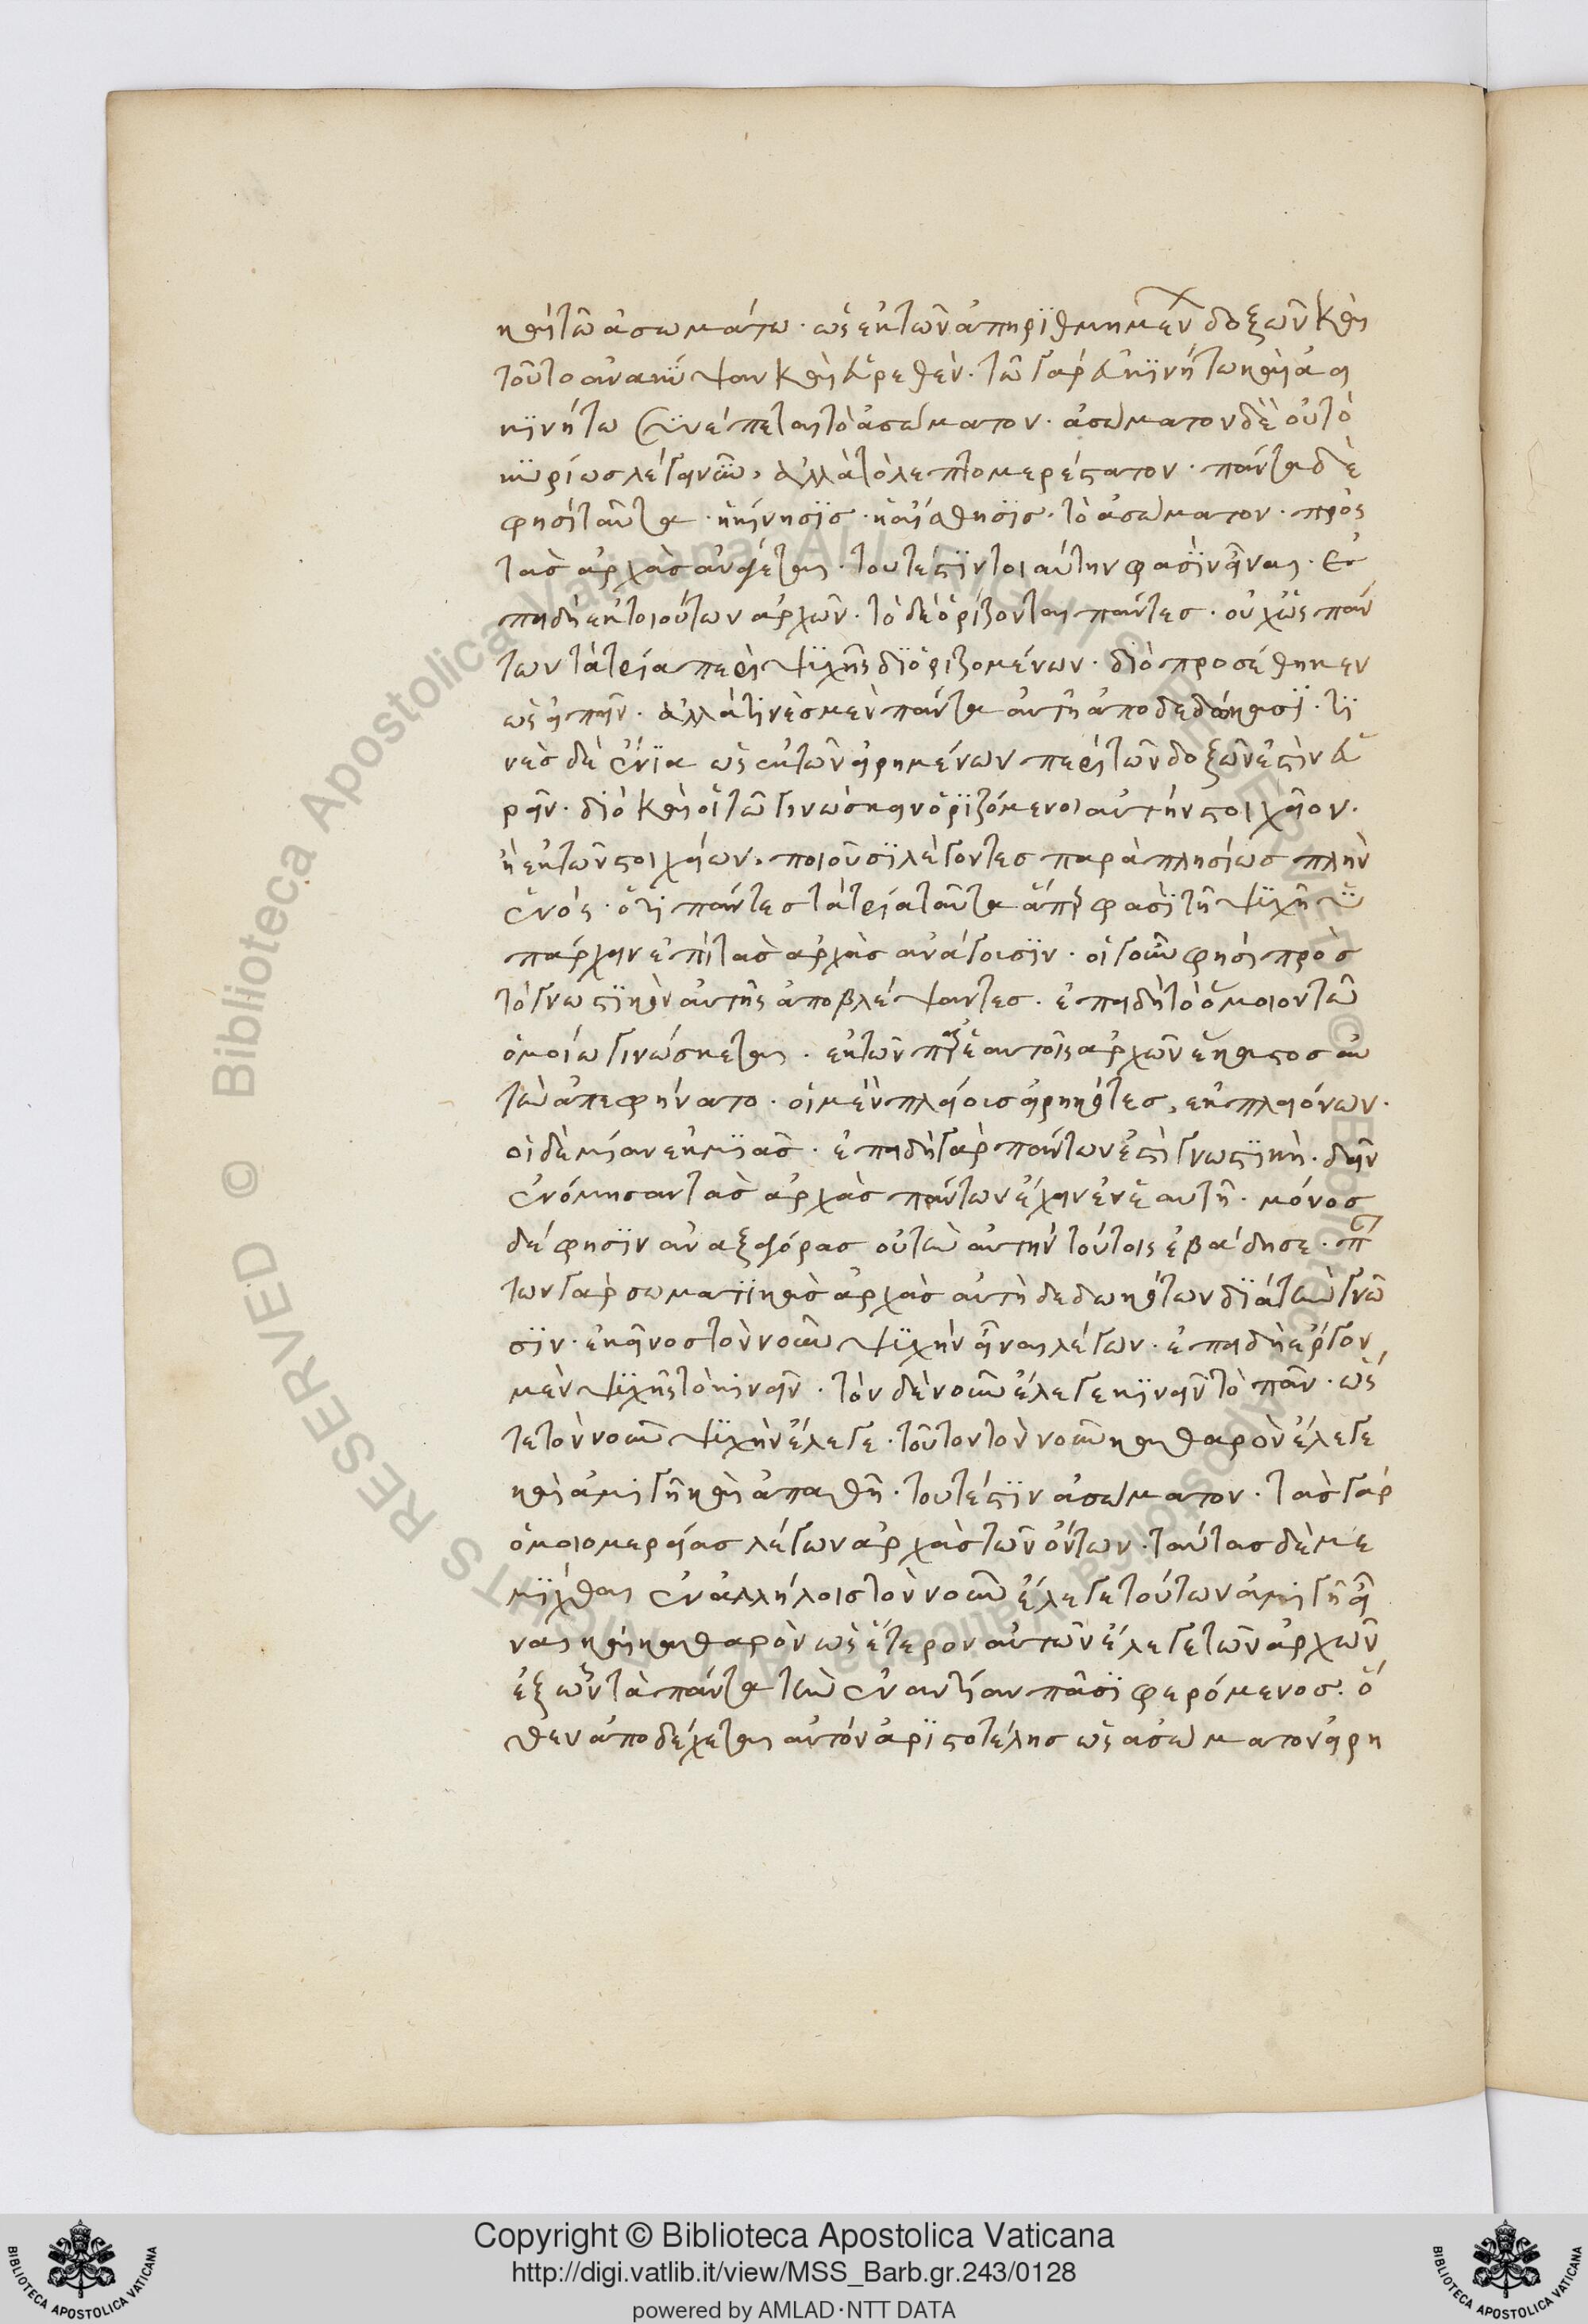 καὶ τῶ ἀσωμάτω· ὡς ἐκ τῶν ἀπηριθμημένων δοξῶν καὶ
τοῦτο ἀνακύψαν καὶ εὑρεθέν. τῶ γὰρ εὐκινήτω καὶ ἀει
κινήτω συνέπεται τὸ ἀσώματον· ἀσώματον δὲ οὐ τὸ
κυρίως λέγει νῦν, ἀλλὰ τὸ λεπτομερέστατον· πάντα δὲ
φησὶ ταῦτα· ἡ κίνησις· ἡ αἴσθησις· τὸ ἀσώματον· πρὸς
τὰς ἀρχὰς ἀνάγεται· τουτέστιν τοιαύτην φασὶν εἶναι· ἐ
πειδὴ ἐκ τοιούτων ἀρχῶν· τὸ δὲ ὁρίζονται πάντες· οὐχ ὡς πάν
των τὰ τρία περὶ ψυχῆς διοριζομένων· διὸ προσέθηκεν
ὡς εἰπεῖν· ἀλλὰ τινὲς μὲν πάντα αὐτῆ ἀποδεδώκασι· τι
νὲς δὲ ἔνια ὡς ἐκ τῶν εἰρημένων περὶ τῶν δοξῶν ἐστὶν εὑ
ρεῖν· διὸ καὶ οἱ τῶ γινώσκειν ὁριζόμενοι αὐτὴν στοιχεῖον·
ἢ ἐκ τῶν στοιχείων· ποιοῦσι λέγοντες παρὰπλησίως πλὴν
ἑνός· ὅτι πάντες τὰ τρία ταῦτα ἅπερ φασὶ τῆ ψυχῆ ὑ
πάρχειν ἐπὶ τὰς ἀρχὰς ἀνάγουσιν· οἱ γοῦν φησὶ πρὸς
τὸ γνωστικὸν αὐτῆς ἀποβλέψαντες· ἐπειδὴ τὸ ὅμοιον τῶ
ὁμοίω γινώσκεται· ἐκ τῶν παρ' ἑαυτοῖς ἀρχῶν ἕκαστος αὐ
τὴν ἀπεφήνατο· οἱ μὲν πλείους εἰρηκότες, ἐκ πλειόνων·
οἱ δὲ μίαν ἐκ μιᾶς· ἐπειδὴ γὰρ πάντων ἐστὶ γνωστική· δεῖν
ἐνόμισαν τὰς ἀρχὰς πάντων ἔχειν ἐν ἑαυτῆ· μόνος
δέ φησιν ἀναξαγόρας οὐ τὴν αὐτὴν τούτοις ἐβάδησε· πάν
των γὰρ σωματικὰς ἀρχὰς αὐτῆ δεδωκότων διὰ τὴν γνῶ
σιν· ἐκεῖνος τὸν νοῦν ψυχὴν εἶναι λέγων· ἐπειδὴ ἔργον
μὲν ψυχῆς τὸ κινεῖν· τὸν δὲ νοῦν ἔλεγε κινεῖν τὸ πᾶν· ὥς
τε τὸν νοῦν ψυχὴν ἔλεγε· τοῦτον τὸν νοῦν καθαρὸν ἔλεγε
καὶ ἀμιγῆ καὶ ἀπαθῆ· τουτέστιν ἀσώματον· τὰς γὰρ
ὁμοιομερείας λέγων ἀρχὰς τῶν ὄντων· ταύτας δὲ με
μίχθαι ἐν ἀλλήλοις τὸν νοῦν ἔλεγε τούτων ἀμιγῆ εἶ
ναι καὶ καθαρὸν ὡς ἕτερον αὐτῶν ἔλεγε τῶν ἀρχῶν
ἐξ ὧν τὰ πάντα τὴν ἐναντίαν πᾶσι φερόμενος· ὅ
θεν ἀποδέχεται αὐτὸν ἀριστοτέλης ὡς ἀσώματον εἰρη
Copyright © Biblioteca Apostolica Vaticana
http://digi.vatlib.it/view/MSS_Barb.gr.243/0128
powered by AMLAD·NTT DATA